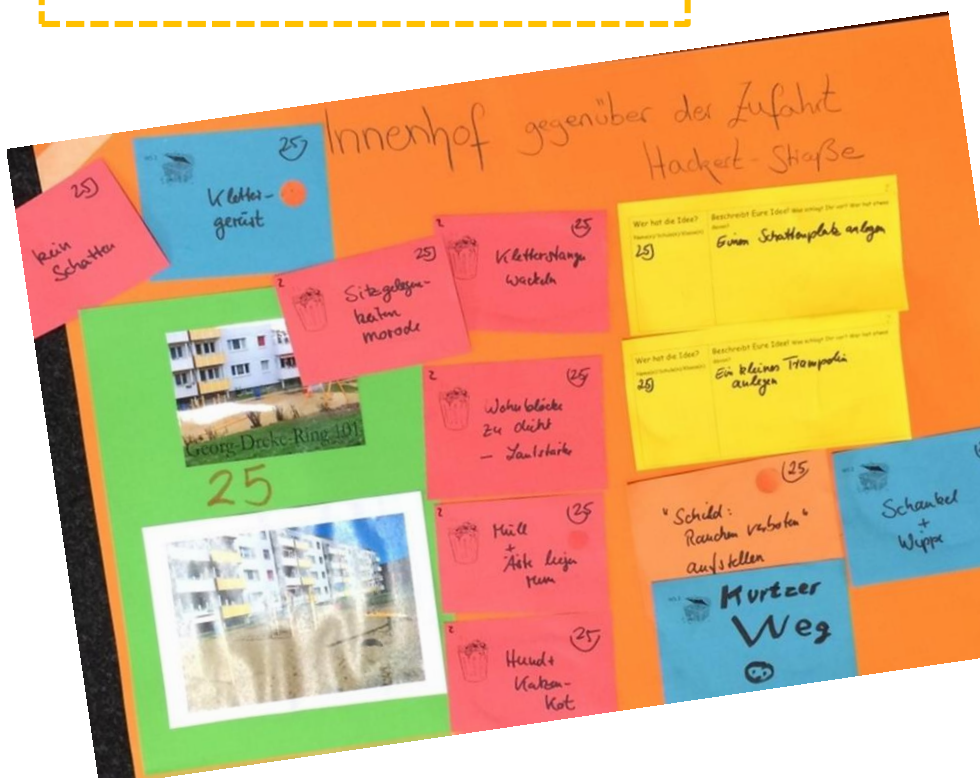 Innenhof gegenüber der Zufahrt
Hackert-Straße
25
kein
Schatten
25
Kletter-
gerüst
25
Sitzgelegen-
heiten
morode
25
Kletterstangen
wackeln
25
Wohnblöcke
zu dicht
– Lautstärke
25
Müll
+
Äste liegen
rum
25
Hund+
Katzen-
Kot
Georg-Dreke-Ring 101
25
Wer hat die Idee?
Beschreibt Eure Idee!
25
Einen Schattenplatz anlegen
Wer hat die Idee?
Beschreibt Eure Idee!
25
Ein kleines Trampolin
anlegen
25
"Schild:
Rauchen verboten"
aufstellen
Schaukel
+
Wippe
Kurtzer
Weg